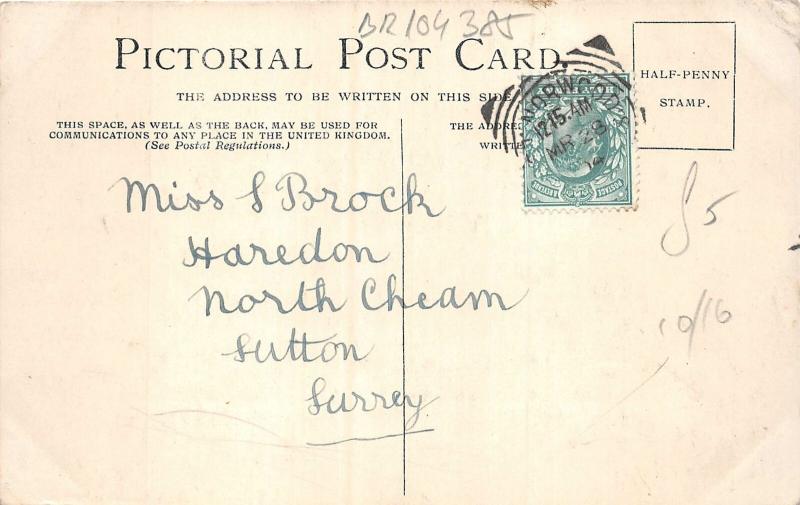 BR104385
PICTORIAL POST CARD.
THE ADDRESS TO BE WRITTEN ON THIS SIDE
HALF-PENNY
STAMP.
THIS SPACE, AS WELL AS THE BACK, MAY BE USED FOR
COMMUNICATIONS TO ANY PLACE IN THE UNITED KINGDOM.
(See Postal Regulations.)
THE
NORWOOD
12.15 AM
MR 28
POSTAGE
& REVENUE
Miss S Brock
Haredon
North Cheam
Sutton
Surrey
10/16